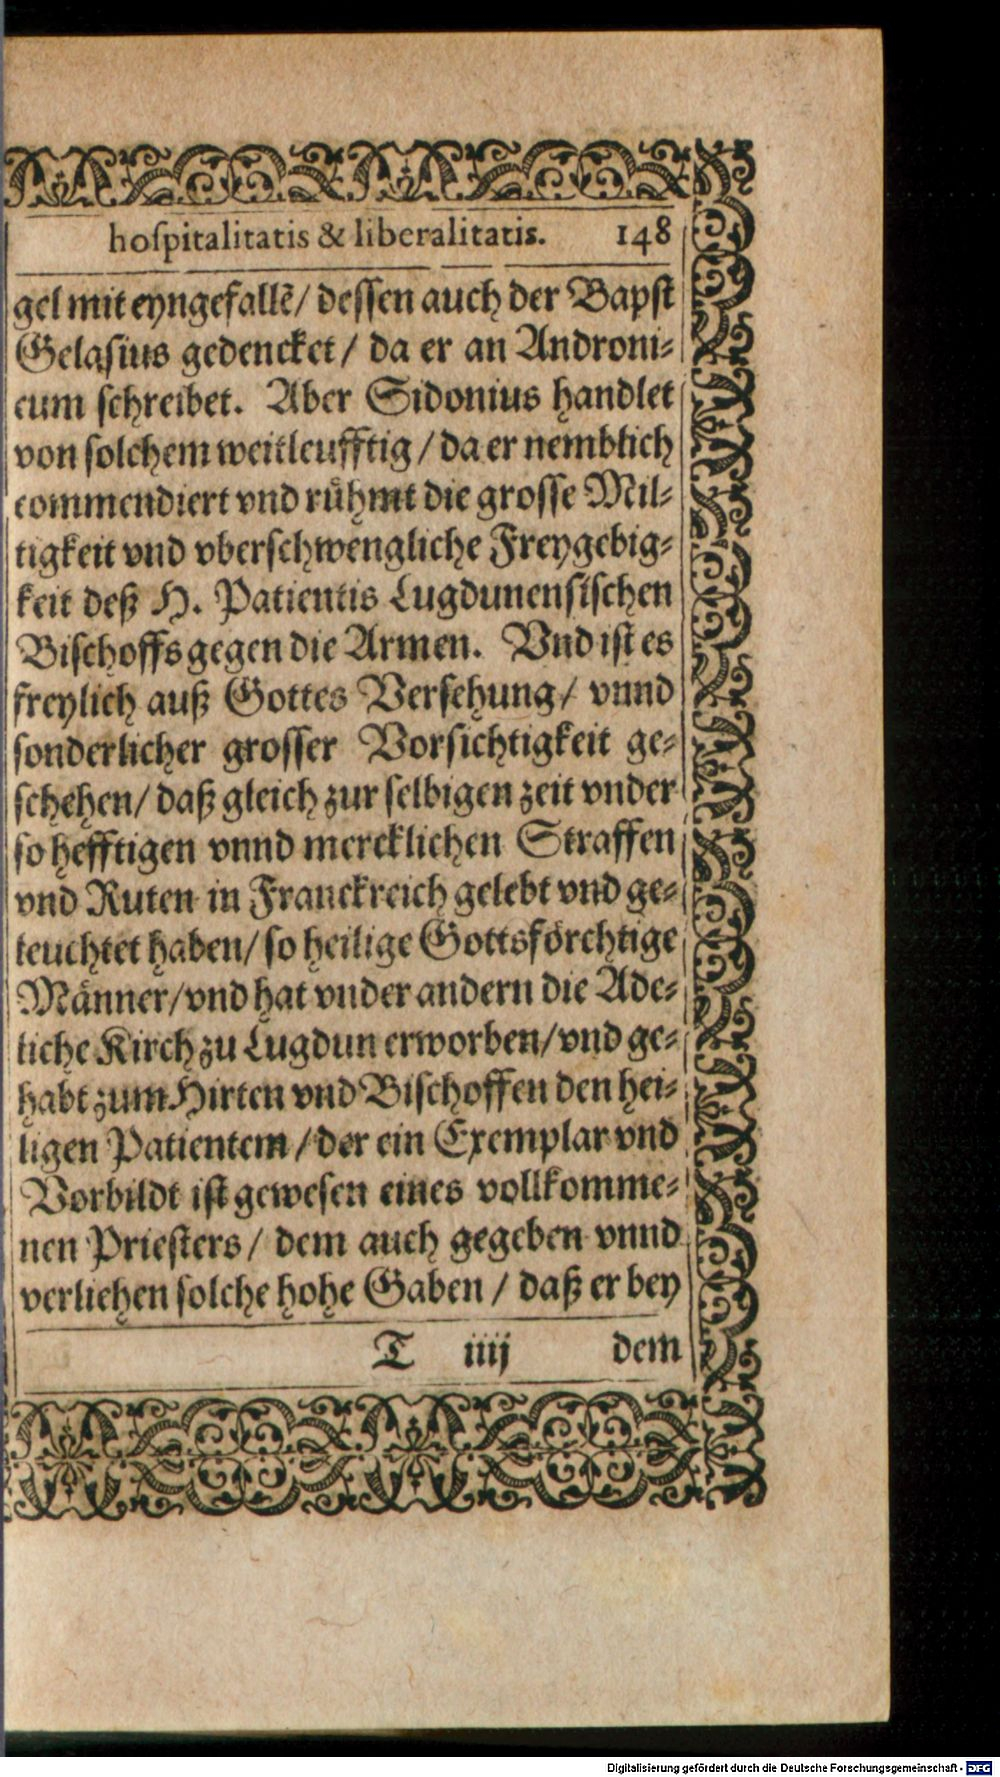 hospitalitatis & liberalitatis. 148
gel mit eyngefallẽ/ dessen auch der Bapst
Gelasius gedencket / da er an Androni-
cum schreibet. Aber Sidonius handlet
von solchem weitleufftig / da er nemblich
commendiert vnd rühmt die grosse Mil-
tigkeit vnd vberschwengliche Freygebig-
keit deß H. Patientis Lugdunensischen
Bischoffs gegen die Armen. Vnd ist es
freylich auß Gottes Versehung/ vnnd
sonderlicher grosser Vorsichtigkeit ge-
schehen/ daß gleich zur selbigen zeit vnder
so hefftigen vnnd mercklichen Straffen
vnd Ruten in Franckreich gelebt vnd ge-
leuchtet haben/ so heilige Gottsförchtige
Männer/ vnd hat vnder andern die Ade-
liche Kirch zu Lugdun erworben/ vnd ge-
habt zum Hirten vnd Bischoffen den hei-
ligen Patientem / der ein Exemplar vnd
Vorbildt ist gewesen eines vollkomme-
nen Priesters/ dem auch gegeben vnnd
verliehen solche hohe Gaben / daß er bey
T iiij dem
Digitalisierung gefördert durch die Deutsche Forschungsgemeinschaft - DFG